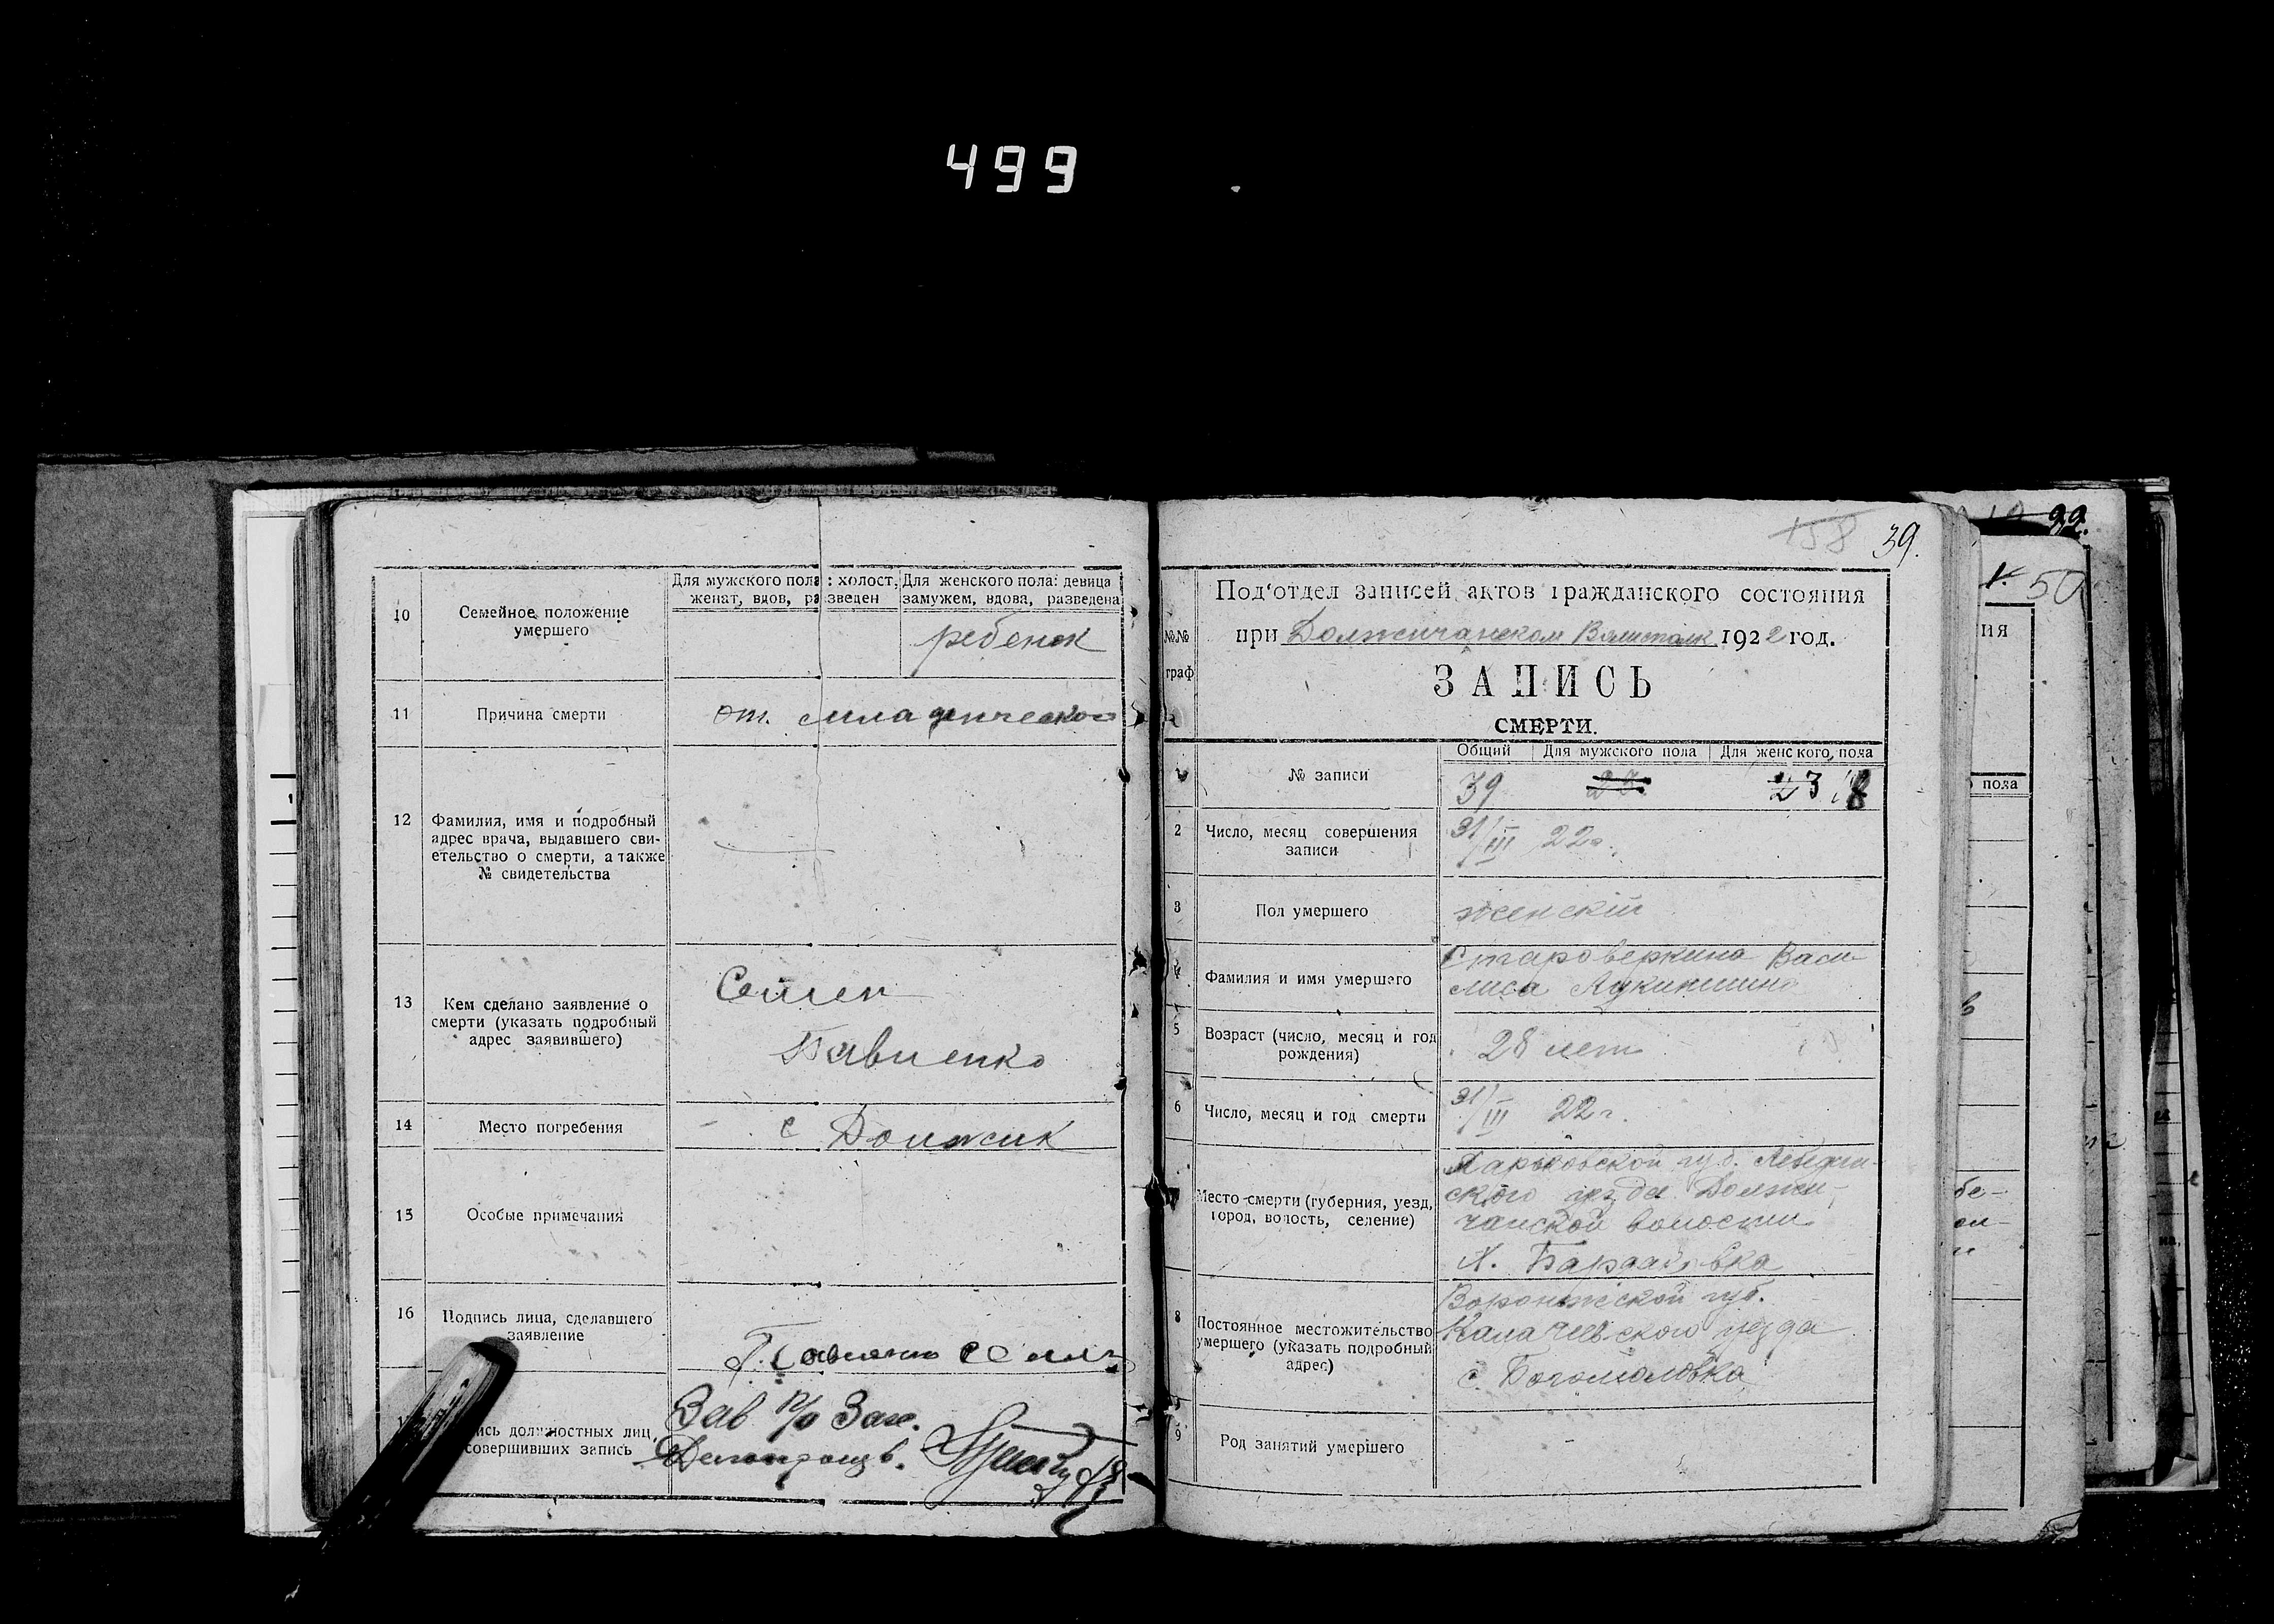 499
10
Семейное положение
умершего
Для мужского пола: холост,
женат, вдов, разведен
Для женского пола: девица
замужем, вдова, разведена
ребенок
11
Причина смерти
от. младенческого
12
Фамилия, имя и подробный
адрес врача, выдавшего сви-
етельство о смерти, а также
№ свидетельства
13
Кем сделано заявление о
смерти (указать подробный
адрес заявившего)
Семен
Павленко
14
Место погребения
с Должик
15
Особые примечания
16
Подпись лица, сделавшего
заявление
ись должностных лиц,
совершивших запись
Зав п/о Зап.
Делопроизв.
158 39.
№№
граф
Под'отдел записей актов гражданского состояния
при Должичанском 1922 год.
ЗАПИСЬ
СМЕРТИ.
Общий Для мужского пола Для женского пола
1
№ записи
39 23 18
2
Число, месяц совершения
записи
31/III 22г.
3
Пол умершего
женский
4
Фамилия и имя умершего
Староверкина Васи-
лиса
5
Возраст (число, месяц и год
рождения)
28 лет
6
Число, месяц и год смерти
31/III 22г.
Место смерти (губерния, уезд,
город, волость, селение)
Харьковской губ. Лебедин-
ского уезда Должи-
чанской волости
Х.
8
Постоянное местожительство
умершего (указать подробный
адрес)
Воронежской губ.
Калачевского уезда
с. Богомоловка
9
Род занятий умершего
-
99.
50
ия
пола
бе-